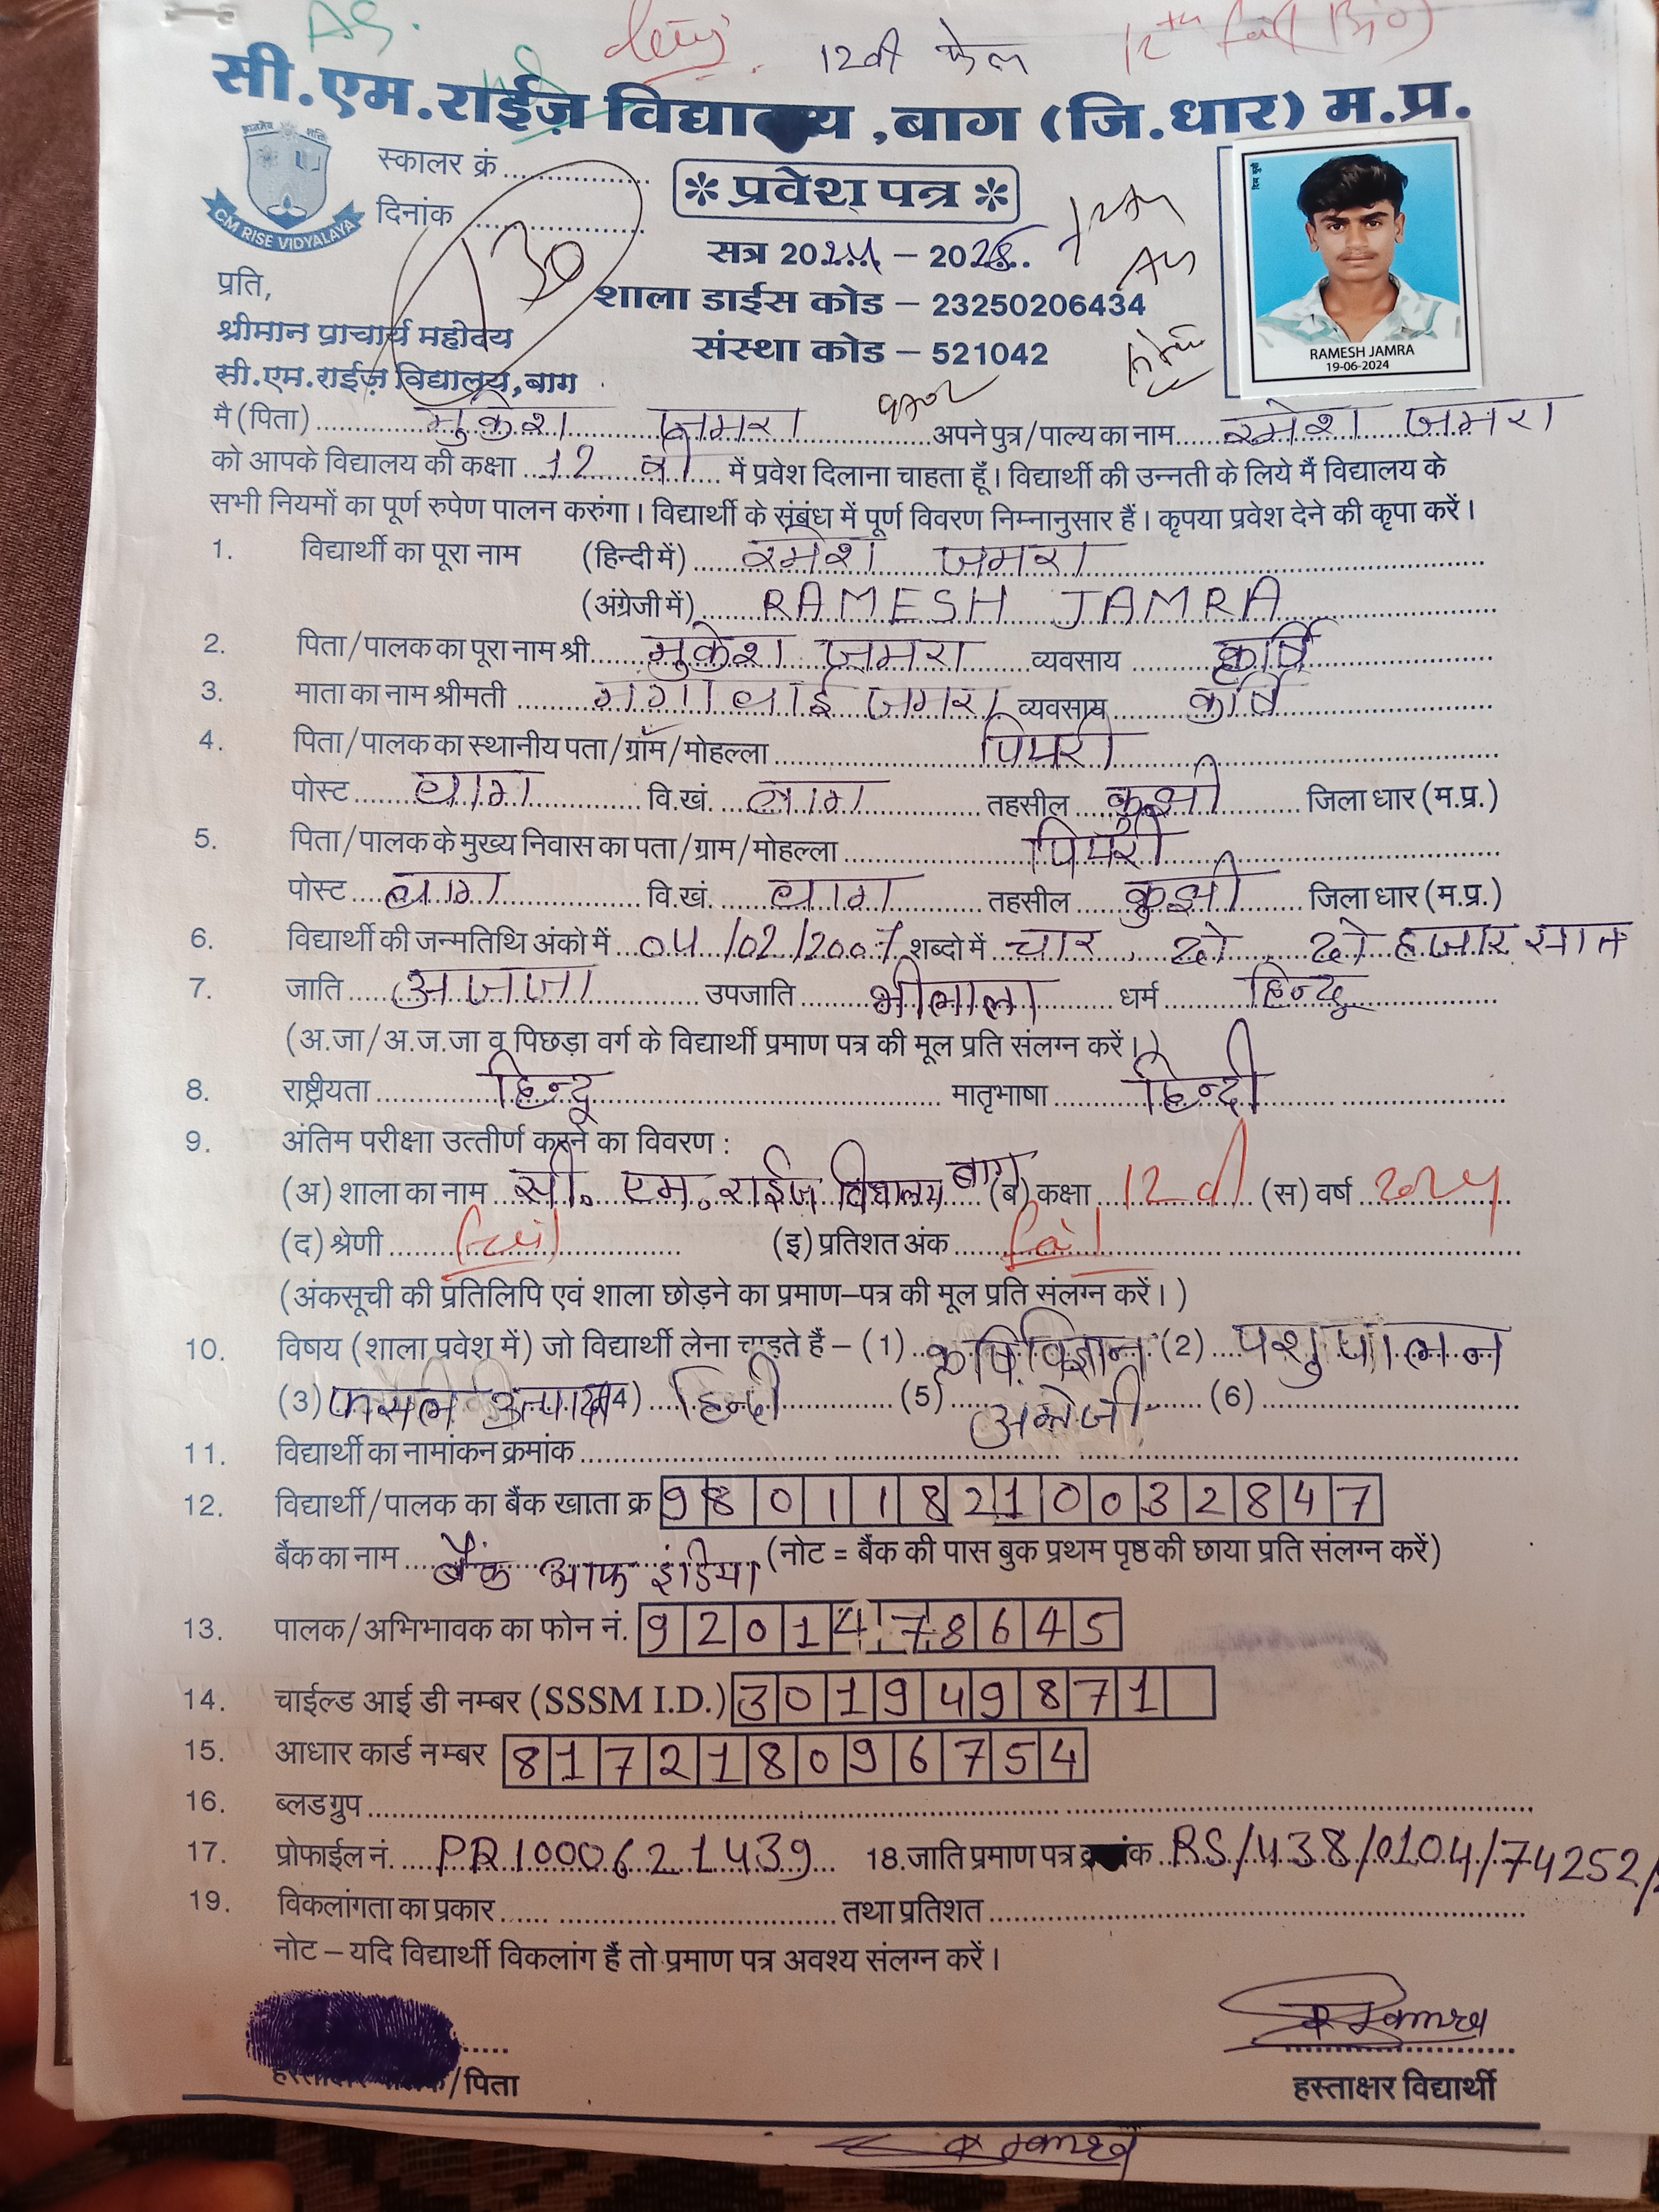 12वी फेल 12th fail (Bio)
सी.एम.राईज़ विद्यालय ,बाग (जि.धार) म.प्र.
CM RISE VIDYALAYA
स्कालर क्रं
* प्रवेश पत्र *
दिनांक
130
सत्र 2024 – 2025
शाला डाईस कोड – 23250206434
संस्था कोड – 521042
RAMESH JAMRA
19-06-2024
प्रति,
श्रीमान प्राचार्य महोदय
सी.एम.राईज़ विद्यालय,बाग
मै (पिता) मुकेश जमरा अपने पुत्र/पाल्य का नाम रमेश जमरा
को आपके विद्यालय की कक्षा 12 वी में प्रवेश दिलाना चाहता हूँ। विद्यार्थी की उन्नती के लिये मैं विद्यालय के
सभी नियमों का पूर्ण रुपेण पालन करुंगा। विद्यार्थी के संबंध में पूर्ण विवरण निम्नानुसार हैं। कृपया प्रवेश देने की कृपा करें।
1. विद्यार्थी का पूरा नाम (हिन्दी में) रमेश जमरा
(अंग्रेजी में) RAMESH JAMRA
2. पिता/पालक का पूरा नाम श्री मुकेश जमरा व्यवसाय कृर्षि
3. माता का नाम श्रीमती गंगा बाई जमरा व्यवसाय कृर्षि
4. पिता/पालक का स्थानीय पता/ग्राम/मोहल्ला पिपरी
पोस्ट बाग वि.खं. बाग तहसील कुक्षी जिला धार (म.प्र.)
5. पिता/पालक के मुख्य निवास का पता/ग्राम/मोहल्ला पिपरी
पोस्ट बाग वि.खं. बाग तहसील कुक्षी जिला धार (म.प्र.)
6. विद्यार्थी की जन्मतिथि अंको में 04/02/2007 शब्दो में चार दो दो हजार सात
7. जाति अजजा उपजाति भीलाला धर्म हिन्दू
(अ.जा/अ.ज.जा व पिछड़ा वर्ग के विद्यार्थी प्रमाण पत्र की मूल प्रति संलग्न करें।)
8. राष्ट्रीयता हिन्दू मातृभाषा हिन्दी
9. अंतिम परीक्षा उत्तीर्ण करने का विवरण :
(अ) शाला का नाम सी. एम. राईज विद्यालय बाग (ब) कक्षा 12 वी (स) वर्ष 2024
(द) श्रेणी fail (इ) प्रतिशत अंक fail
(अंकसूची की प्रतिलिपि एवं शाला छोड़ने का प्रमाण–पत्र की मूल प्रति संलग्न करें।)
10. विषय (शाला प्रवेश में) जो विद्यार्थी लेना चाहते हैं – (1) कृषि विज्ञान (2) पशुपालन
(3) फसल उत्पादन (4) हिन्दी (5) अग्रेजी (6)
11. विद्यार्थी का नामांकन क्रमांक
12. विद्यार्थी/पालक का बैंक खाता क्र 980118210032847
बैंक का नाम बैंक आफ इंडिया (नोट = बैंक की पास बुक प्रथम पृष्ठ की छाया प्रति संलग्न करें)
13. पालक/अभिभावक का फोन नं. 9201478645
14. चाईल्ड आई डी नम्बर (SSSM I.D.) 301949871
15. आधार कार्ड नम्बर 817218096754
16. ब्लड ग्रुप
17. प्रोफाईल नं. PR1000621439 18.जाति प्रमाण पत्र क्रमांक RS/438/0104/74252/
19. विकलांगता का प्रकार तथा प्रतिशत
नोट – यदि विद्यार्थी विकलांग हैं तो प्रमाण पत्र अवश्य संलग्न करें।
हस्ताक्षर पालक/पिता हस्ताक्षर विद्यार्थी